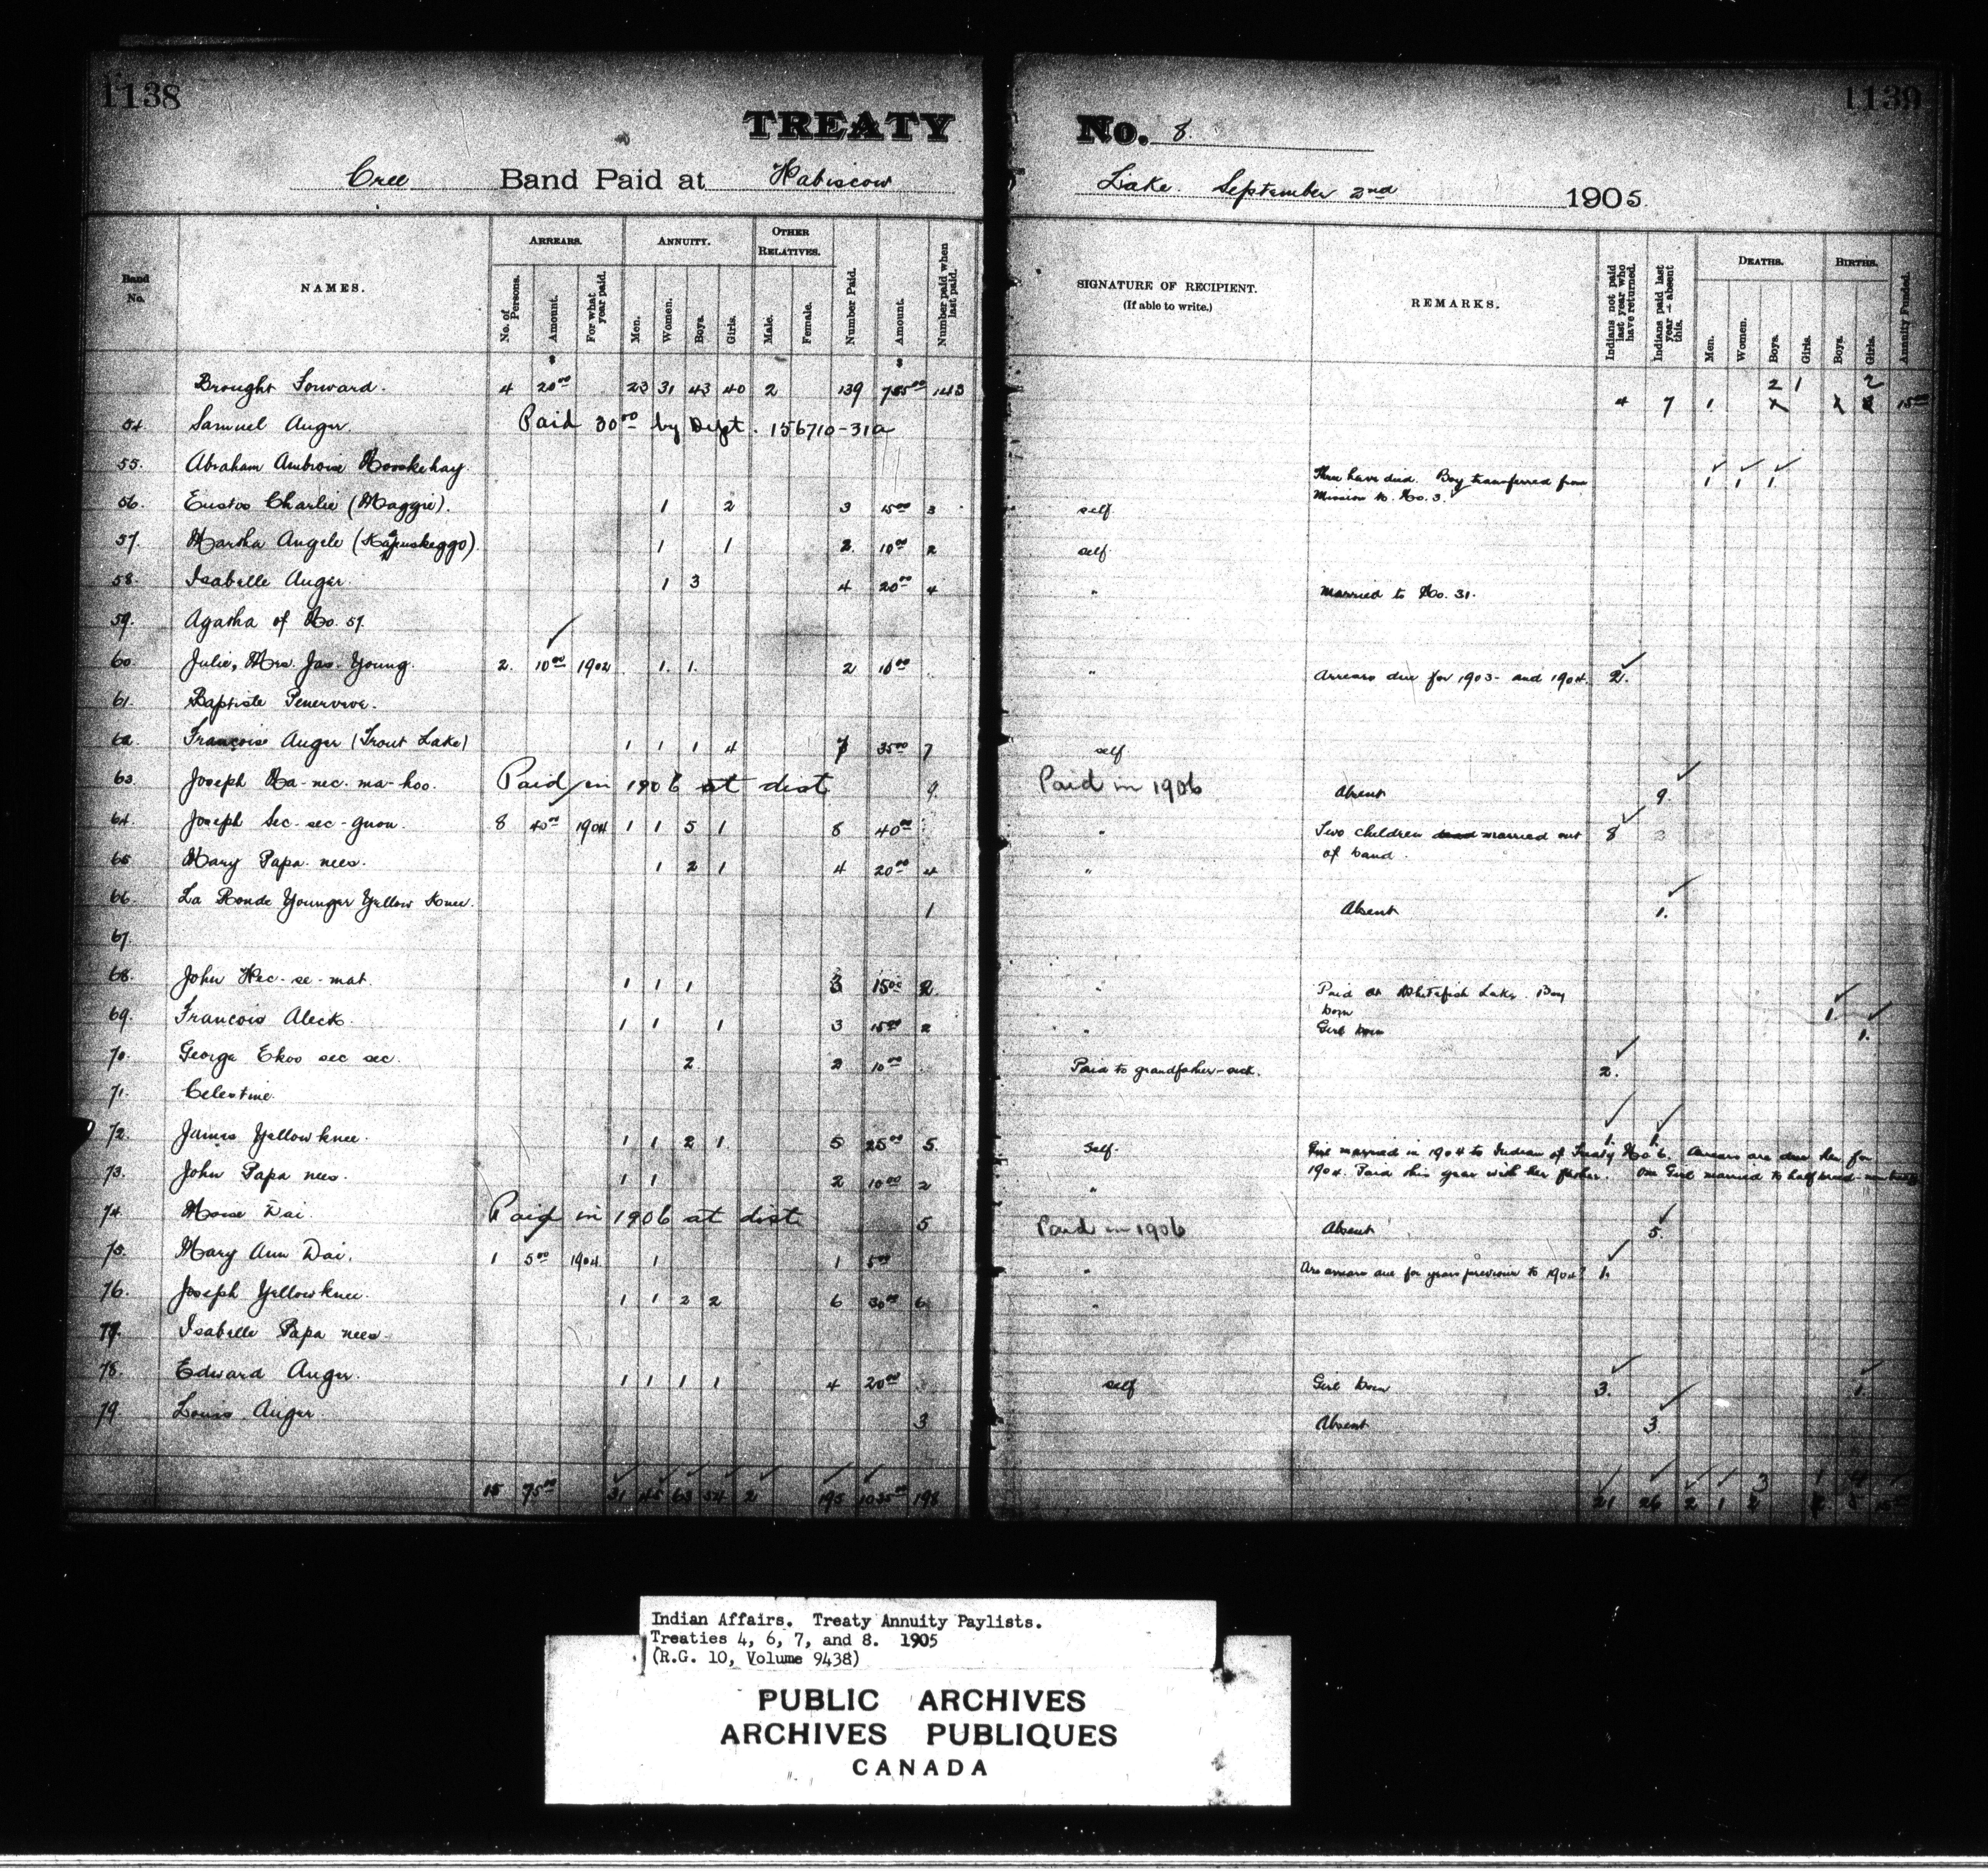 1138
1139
TREATY No. 8.
Cree Band Paid at Wabiscow Lake. September 2nd 1905
Band No. NAMES. ARREARS. No. of Persons. Amount. For what year paid. ANNUITY. Men. Women. Boys. Girls. OTHER RELATIVES. Male. Female. Number Paid. Amount. Number paid when last paid. SIGNATURE OF RECIPIENT. (If able to write.) REMARKS. Indians not paid last year who have returned. Indians paid last year - absent this. DEATHS. Men. Women. Boys. Girls. BIRTHS. Boys. Girls. Annuity Funded.
$ $
Brought Forward. 4 20 00 23 31 43 40 2 139 143 2 1 2
4 7 1. 15 00
54 Samuel Auger. Paid 30 00 by Dept. 156710-31a
55. Abraham Ambroise Three have died. Boy transferred from 1 1 1
Mission to No. 3.
56. Eustos Charlie (Maggie). 1 2 3 15 00 3 self.
57. Martha Angele 1 1 2. 10 00 2 self.
58. Isabelle Auger. 1 3 4 20 00 4 " Married to No. 31.
59. Agatha of No. 57
60 Julie, Mrs. Jas. Young. 2. 10 00 1902 1. 1. 2 10 00 " Arrears due for 1903 - and 1904. 2.
61. Baptiste
62. Francoise Auger (Trout Lake) 1 1 1 4 7 35 00 7 self
63. Joseph Na-nec-ma-hoo. Paid in 1906 at dist 9. Paid in 1906 Absent 9.
64. Joseph Sec-sec-guon. 8 40 00 1904 1 1 5 1 8 40 00 " Two children married out 8
of band.
65 Mary Papa nees. 1 2 1 4 20 00 4 "
66 La Ronde Younger Yellow Knee. 1 Absent 1.
67.
68. John Wec-se-mat. 1 1 1 3 15 00 2 " Paid at Whitefish Lake. Boy
born 1.
69. Francois Aleck. 1 1 1 3 15 00 2 " Girl born 1.
70. George Ekoo sec sec. 2 2 10 00 Paid to grandfather - sick. 2.
71. Celestine.
72. James Yellowknee. 1 1 2 1 5 25 00 5. Self. 1. 1.
Girl married in 1904 to Indian of Treaty No 6. Arrears are due her for
73. John Papa nees. 1 1 2 10 00 2 " 1904. Paid this year with her father. One Girl married to half breed
74. Moise Dai. Paid in 1906 at dist 5 Paid in 1906 Absent 5.
75. Mary Ann Dai. 1 5 00 1904. 1 1 5 00 " Are arrears due for years previous to 1904? 1.
76. Joseph Yellowknee. 1 1 2 2 6 30 00 6 "
77. Isabelle Papa nees.
78. Edward Auger. 1 1 1 1 4 20 00 self Girl born 3. 1.
79. Louis Auger. 3 Absent 3
15 75 00 31 45 63 54 2 195 1035 00 198 21 26 2 1 3 1 4
Indian Affairs. Treaty Annuity Paylists.
Treaties 4, 6, 7, and 8. 1905
(R.G. 10, Volume 9438)
PUBLIC ARCHIVES
ARCHIVES PUBLIQUES
CANADA